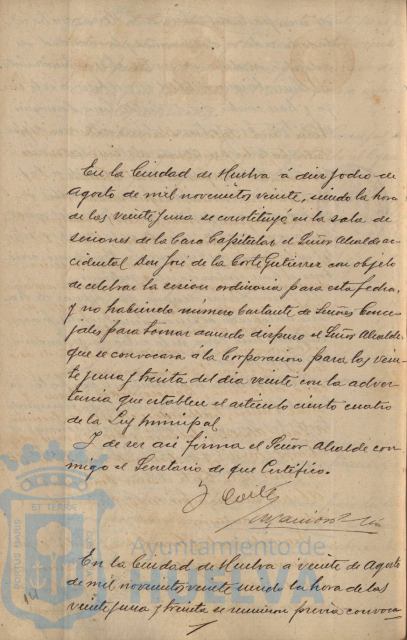 En la Ciudad de Huelva á diez y ocho de
Agosto de mil novecientos veinte, siendo la hora
de las veinte y una se constituyó en la sala de
sesiones de la Casa Capitular el Señor Alcalde ac-
cidental Don José de la Corte Gutierrez con objeto
de celebrar la sesion ordinaria para esta fecha,
y no habiendo número bastante de Señores Conce-
jales para tomar acuerdo dispuso el Señor Alcalde
que se convocara á la Corporacion para las vein-
te y una y treinta del dia veinte con la adver-
tencia que establece el articulo ciento cuatro
de la Ley Municipal
Y de ser asi firma el Señor Alcalde con-
migo el Secretario de que Certifico.
J Corte
En la Ciudad de Huelva á veinte de Agosto
de mil novecientos veinte siendo la hora de las
veinte y una y treinta se reunieron previa convoca
PORTUS MARIS
ET TERRAE
Ayuntamiento de
HUELVA